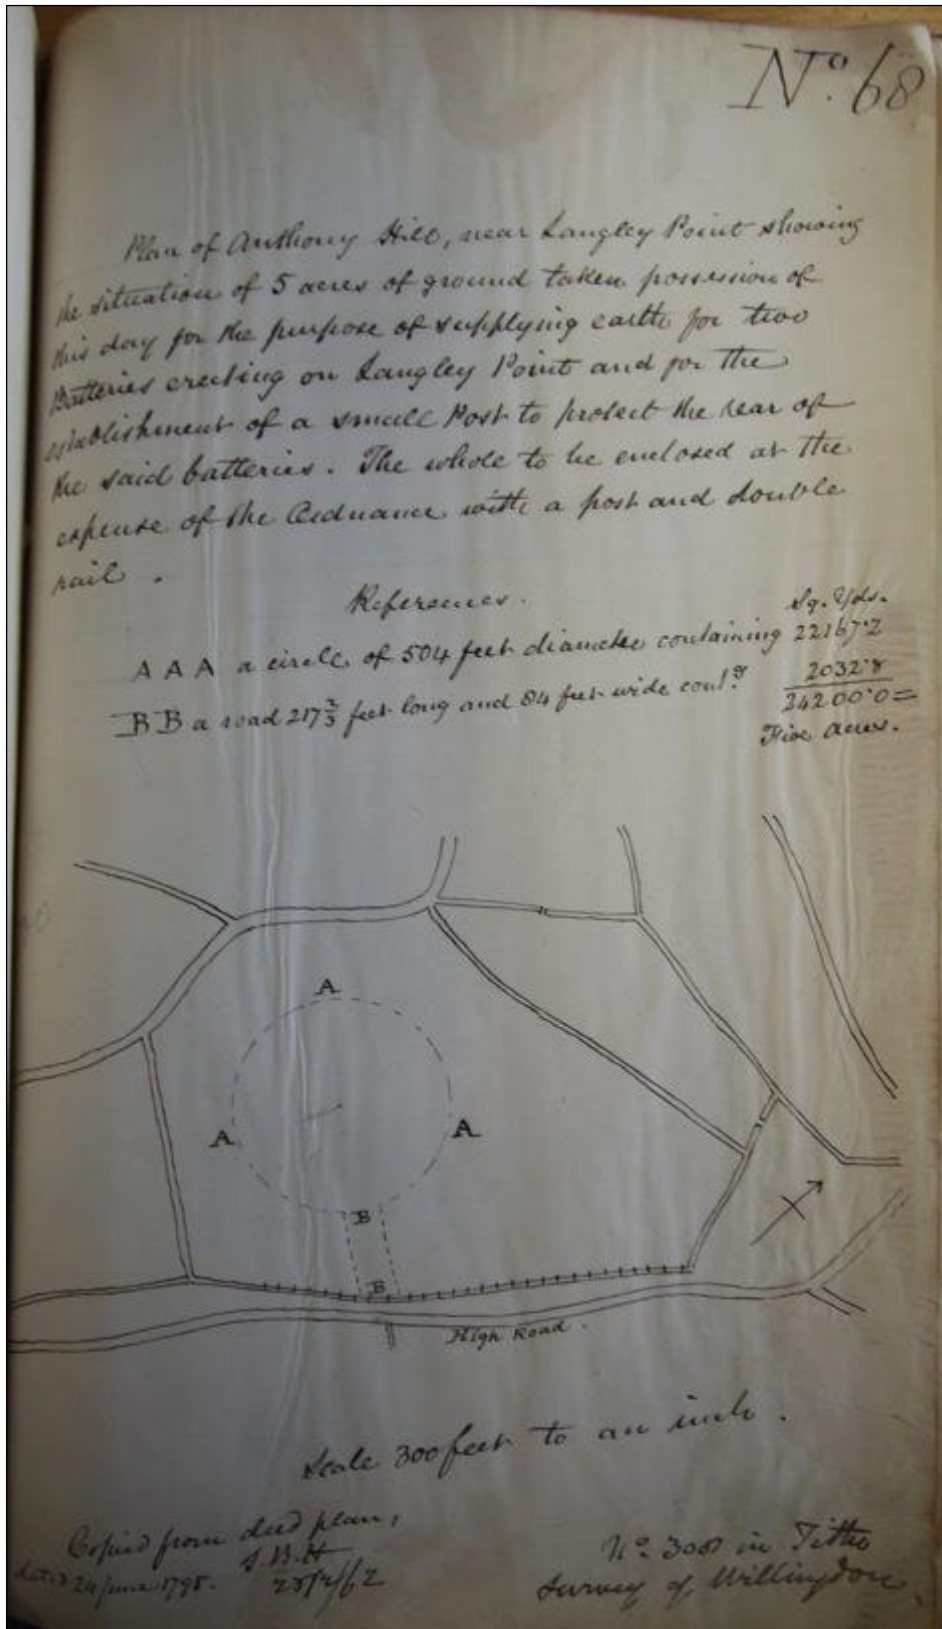 No. 68
Plan of Anthony Hill, near Langley Point showing
the situation of 5 acres of ground taken possession of
this day for the purpose of supplying earth for two
Batteries erecting on Langley Point and for the
establishment of a small Post to protect the rear of
the said batteries. The whole to be enclosed at the
expense of the Ordnance with a post and double
rail.
References.
Sq. Yds.
A A A a circle of 504 feet diameter containing 22167.2
B B a road 217 2/3 feet long and 84 feet wide cont.g 2032.8
24200.0=
Five Acres.
A
A
A
B
B
High Road.
Scale 300 feet to an inch.
Copied from deed plan,
24 June 1795.
No. 308 in Tithe
Survey of Willingdon